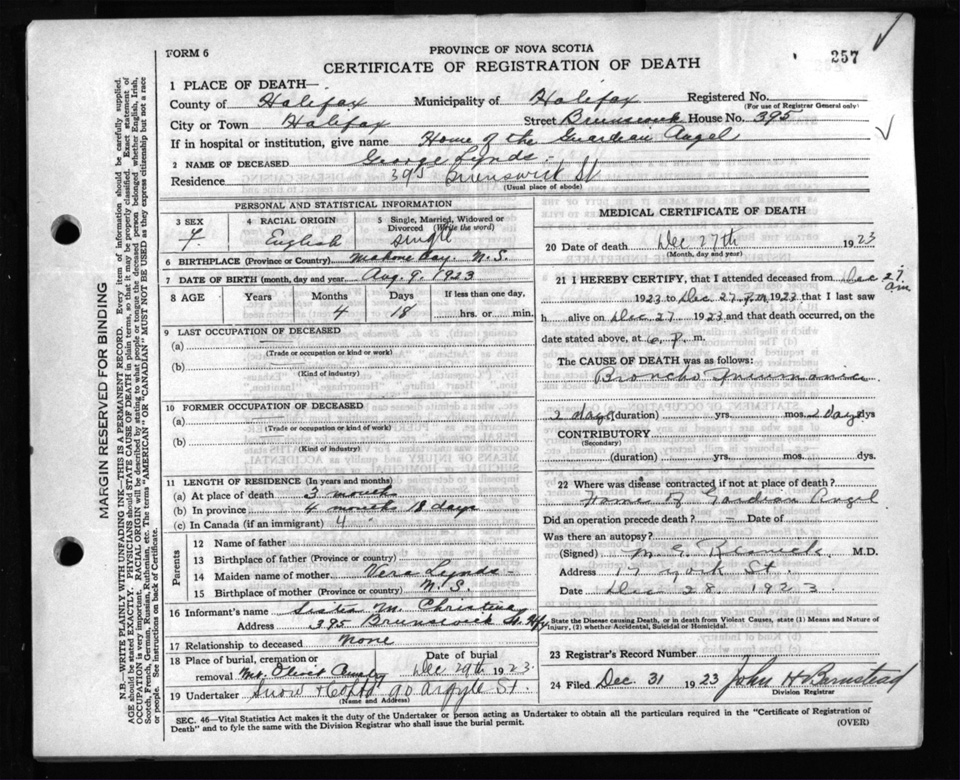 257
FORM 6
PROVINCE OF NOVA SCOTIA
CERTIFICATE OF REGISTRATION OF DEATH
1 PLACE OF DEATH—
County of Halifax Municipality of Halifax Registered No.
(For use of Registrar General only)
City or Town Halifax Street Brunswick House No. 395
If in hospital or institution, give name Home of the Guardian Angel
2 NAME OF DECEASED George Lynds
Residence 395 Brunswick St
(Usual place of abode)
PERSONAL AND STATISTICAL INFORMATION
3 SEX 4 RACIAL ORIGIN 5 Single, Married, Widowed or Divorced (Write the word)
English single
6 BIRTHPLACE (Province or Country) Mahone Bay. N.S.
7 DATE OF BIRTH (month, day and year) Aug. 9. 1923
8 AGE Years Months Days If less than one day,
4 18 hrs. or min.
9 LAST OCCUPATION OF DECEASED
(a)
(Trade or occupation or kind or work)
(b)
(Kind of industry)
10 FORMER OCCUPATION OF DECEASED
(a)
(Trade or occupation or kind or work)
(b)
(Kind of industry)
11 LENGTH OF RESIDENCE (In years and months)
(a) At place of death 3 months
(b) In province 4 months 18 days
(c) In Canada (if an immigrant) 4
Parents
12 Name of father
13 Birthplace of father (Province or country)
14 Maiden name of mother Vera Lynds
15 Birthplace of mother (Province or country) N.S.
16 Informant's name M. Christina
Address 395 Brunswick St. Hfx
17 Relationship to deceased None
18 Place of burial, cremation or removal Mt. Olivet Date of burial Dec 29th 1923
19 Undertaker Snow 90 Argyle St.
(Name and Address)
MEDICAL CERTIFICATE OF DEATH
20 Date of death Dec 27th 1923
(Month, day and year)
21 I HEREBY CERTIFY, that I attended deceased from Dec 27 am
1923 to Dec 27 p.m. 1923 that I last saw
h alive on Dec 27 1923 and that death occurred, on
date stated above, at 6. p. m.
The CAUSE OF DEATH was as follows:
Broncho Pneumonia
2 days (duration) yrs. mos. 2 days dys
CONTRIBUTORY
(Secondary)
(duration) yrs. mos. dys.
22 Where was disease contracted if not at place of death?
Home of Gardian Angel
Did an operation precede death? — Date of
Was there an autopsy?
(Signed) M. E. M.D.
Address 17 York St.
Date Dec 28. 1923
State the Disease causing Death, or in death from Violent Causes, state (1) Means and Nature of Injury, (2) whether Accidental, Suicidal or Homicidal.
23 Registrar's Record Number
24 Filed Dec. 31 1923 John H Barnstead
Division Registrar
SEC. 46—Vital Statistics Act makes it the duty of the Undertaker or person acting as Undertaker to obtain all the particulars required in the "Certificate of Registration of
Death" and to fyle the same with the Division Registrar who shall issue the burial permit. (OVER)
MARGIN RESERVED FOR BINDING
N.B.—WRITE PLAINLY WITH UNFADING INK—THIS IS A PERMANENT RECORD. Every item of information should be carefully supplied.
AGE should be stated EXACTLY. PHYSICIANS should STATE CAUSE OF DEATH in plain terms, so that it may be properly classified. Exact statement of
OCCUPATION is very important. RACIAL ORIGIN will be described by stating to what people or tongue the deceased person belonged whether English, Irish,
Scotch, French, German, Russian, Ruthenian, etc. The terms "AMERICAN" OR "CANADIAN" MUST NOT BE USED as they express citizenship but not a race
or people. See instructions on back of Certificate.